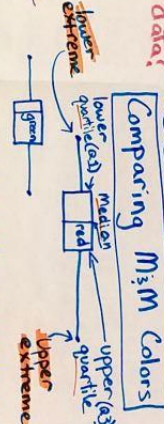 data?
Comparing M&M Colors
lower extreme
lower quartile(Q1)
Median
upper(Q3) quartile
red
Upper extreme
green